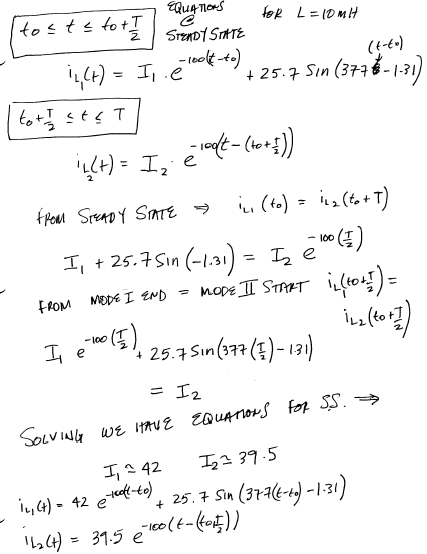 t₀ ≤ t ≤ t₀+T/2 EQUATIONS @ STEADY STATE FOR L = 10mH
i_L₁(t) = I₁ · e^(-100(t-t₀)) + 25.7 Sin (377 (t-t₀) -1.31)
t₀+T/2 ≤ t ≤ T
i_L₂(t) = I₂ · e^(-100(t-(t₀+T/2)))
FROM STEADY STATE ⇒ i_L₁(t₀) = i_L₂(t₀+T)
I₁ + 25.7 Sin (-1.31) = I₂ e^(-100(T/2))
FROM MODE I END = MODE II START i_L₁(t₀+T/2) =
i_L₂(t₀+T/2)
I₁ e^(-100(T/2)) + 25.7 Sin (377(T/2) - 1.31)
= I₂
SOLVING WE HAVE EQUATIONS FOR S.S. ⇒
I₁ ≃ 42 I₂ ≃ 39.5
i_L₁(t) = 42 e^(-100(t-t₀)) + 25.7 Sin (377(t-t₀) -1.31)
i_L₂(t) = 39.5 e^(-100(t-(t₀+T/2)))